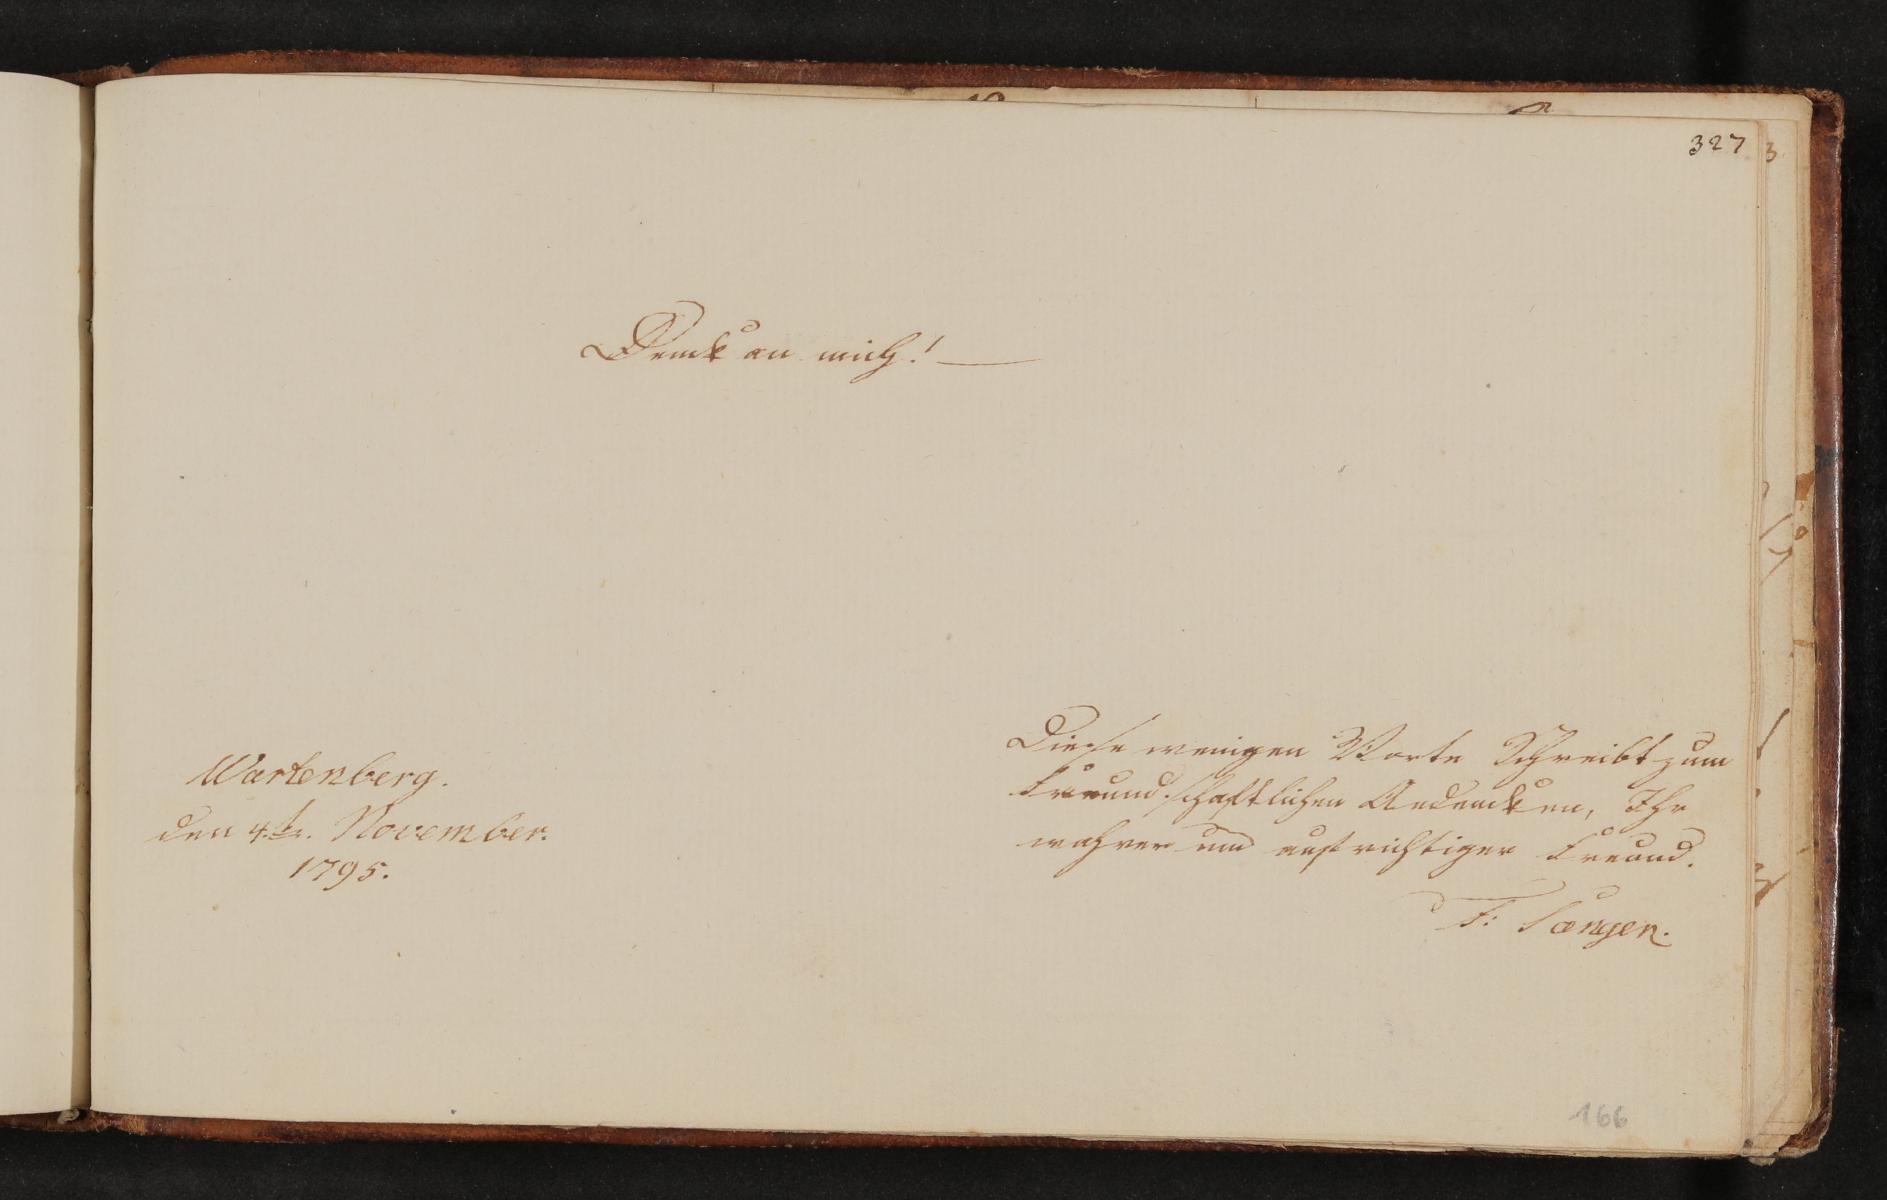 327
Denck an mich! —
Wartenberg.
den 4.t. November.
1795.
Diese wenigen Worte Schreibt zum
freundschaftlichen Andencken, Ihr
wahrer und aufrichtiger Freund.
F: Saenger.
166